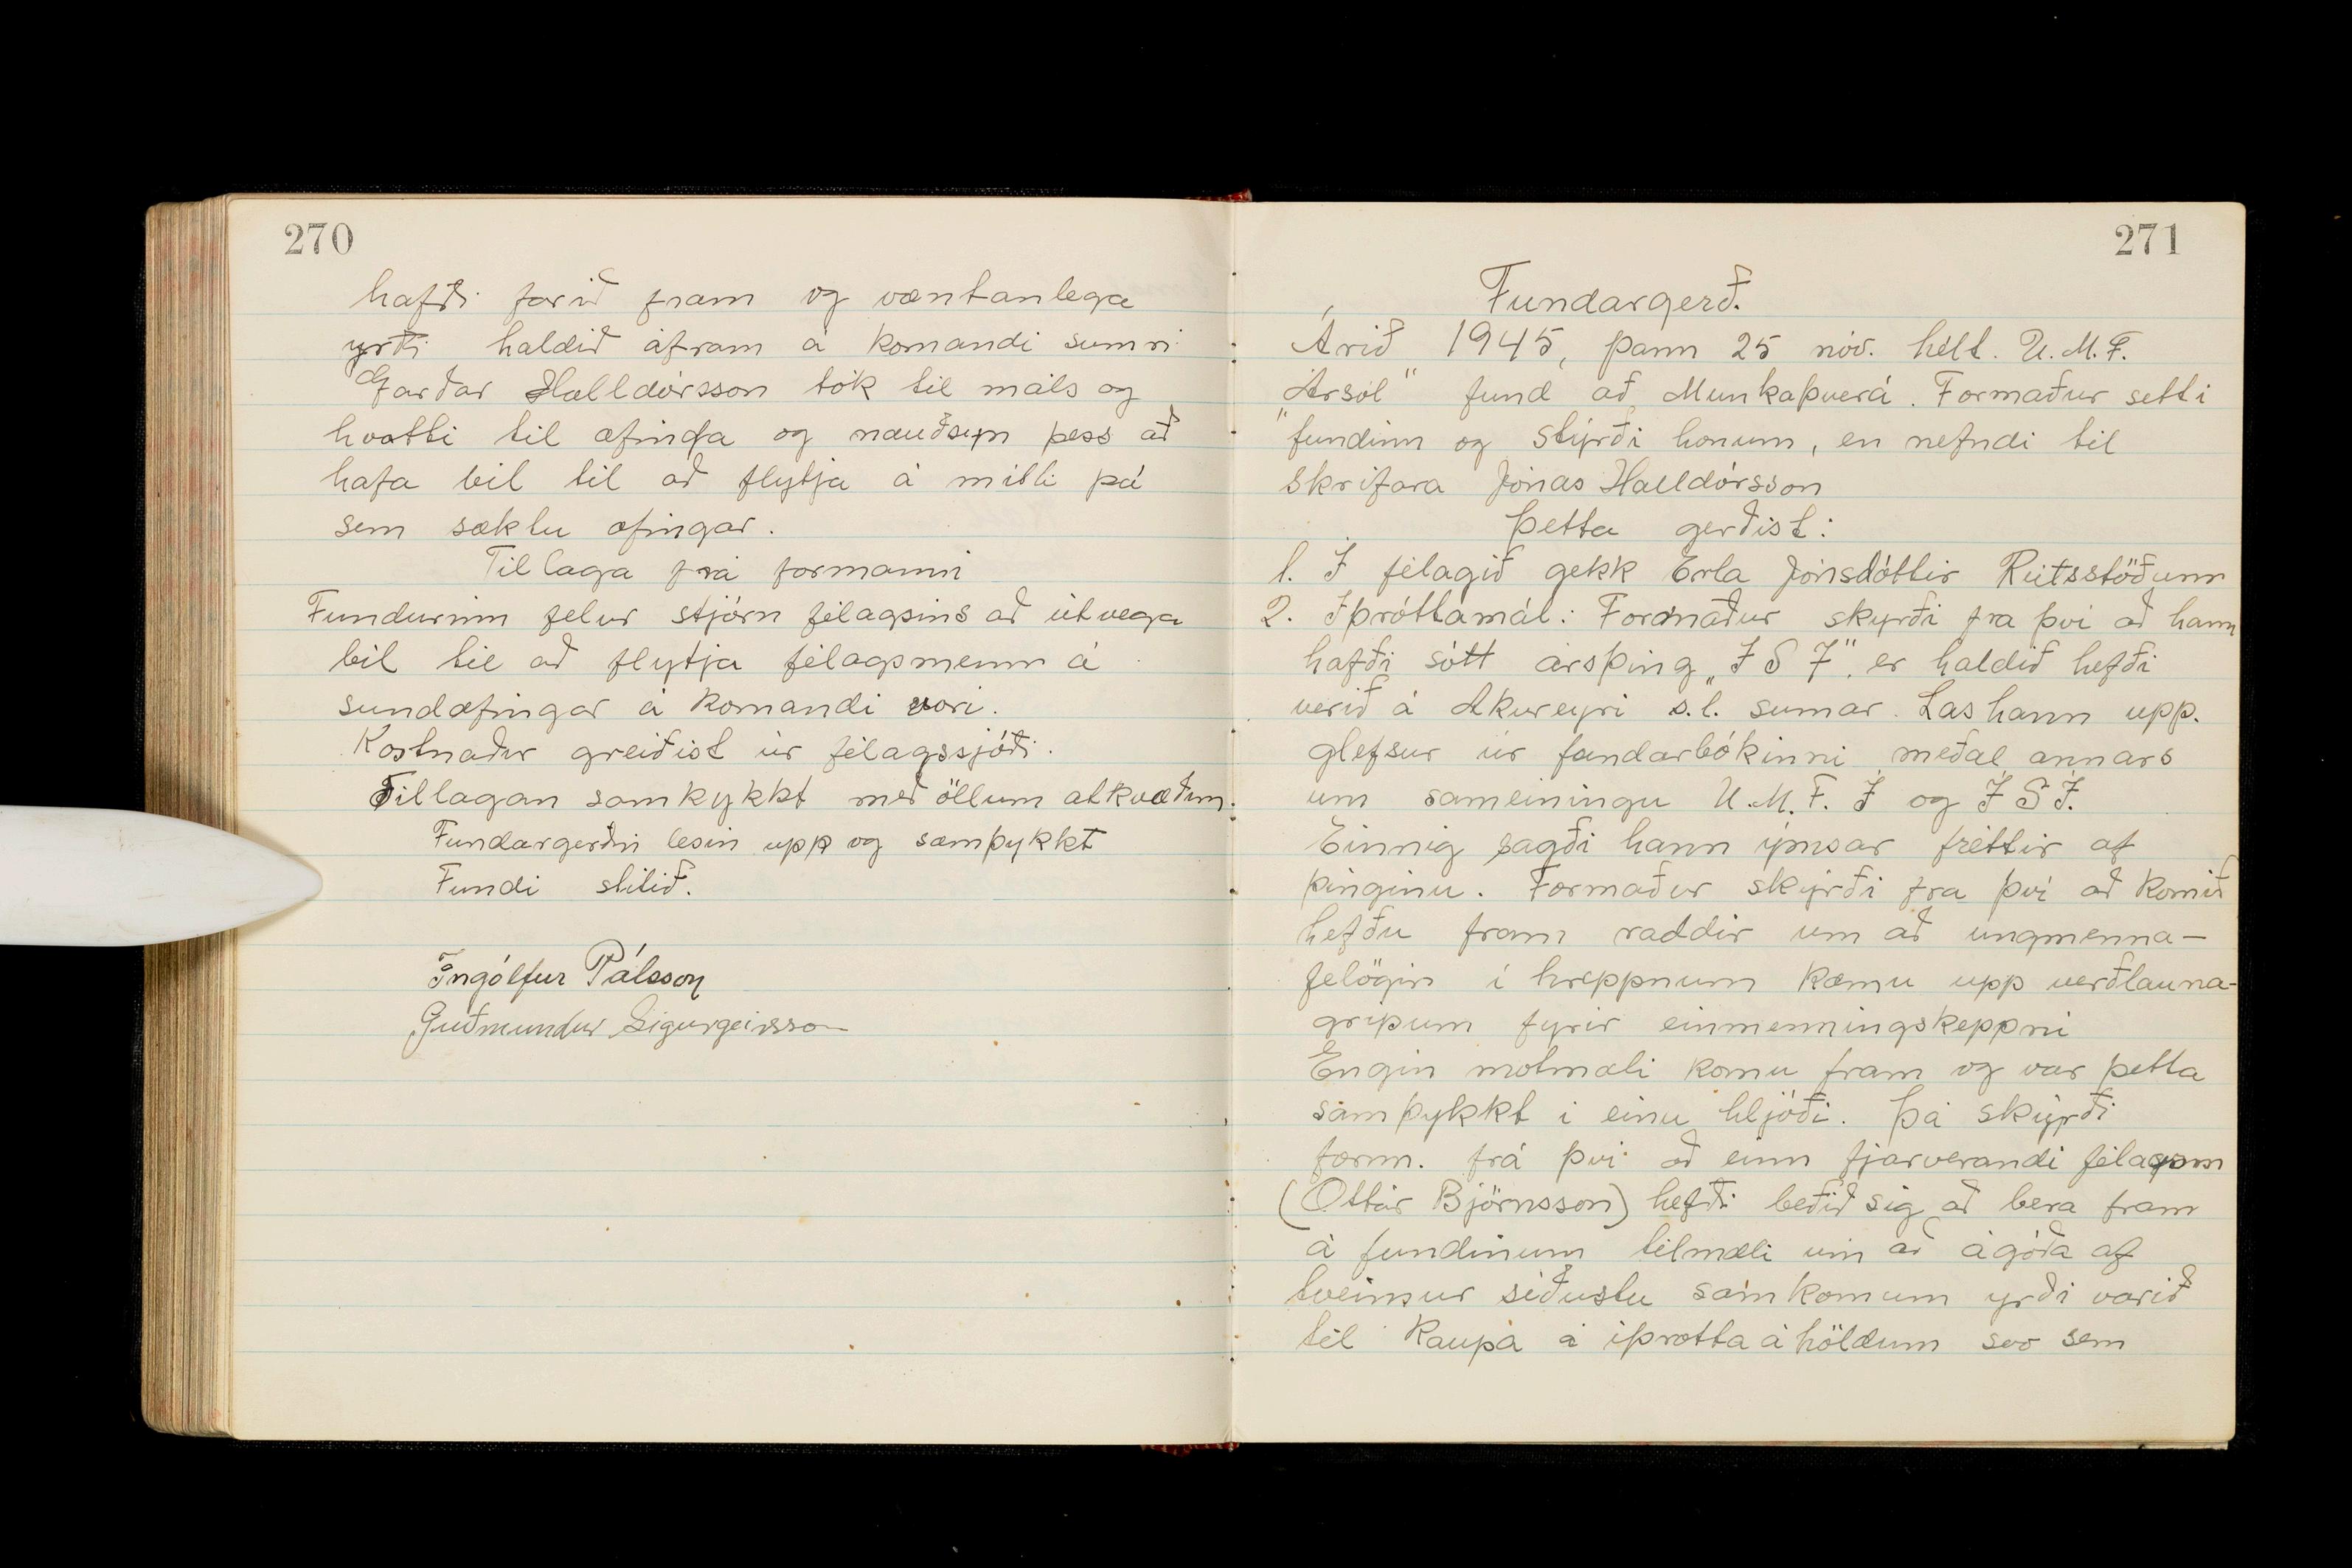 270
hafði farið fram og væntanlega
yrði haldið áfram á komandi sumri
Garðar Halldórsson tók til máls og
hvatti til æfinga og nauðsyn þess að
hafa bíl til að flytja á milli þá
sem sæktu æfingar.
Tillaga frá formanni
Fundurinn felur stjórn félagsins að útvega
bíl til að flytja félagsmenn á
sundæfingar á komandi vori.
Kostnaður greiðist úr félagssjóði.
Tillagan samþykkt með öllum atkvæðum.
Fundargerðin lesin upp og samþykkt
Fundi slitið.
Ingólfur Pálsson
Guðmundur Sigurgeirsson
271
Fundargerð.
Árið 1945, þann 25 nóv. hélt U. M. F.
„Ársól“ fund að Munkaþverá. Formaður setti
fundinn og stýrði honum, en nefndi til
skrifara Jónas Halldórsson
Þetta gerðist:
1. Í félagið gekk Erla Jónsdóttir Rútsstöðum
2. Íþróttamál: Formaður skyrði fra því að hann
hafði sótt ársþing „Í S Í“. er haldið hefði
verið á Akureyri s.l. sumar. Las hann upp.
glefsur úr fundarbókinni meðal annars
um sameiningu U. M. F. Í og Í S Í.
Einnig sagði hann ýmsar fréttir af
þinginu. Formaður skýrði fra því að komið
hefðu fram raddir um að ungmenna-
felögin í hreppnum kæmu upp verðlauna-
gripum fyrir einmenningskeppni
Engin motmæli komu fram og var þetta
samþykkt í einu hljóði. Þá skýrði
form. frá því að einn fjarverandi félagsm
(Ottar Björnsson) hefði beðið sig að bera fram
á fundinum tilmæli um að ágóða af
tveimur síðustu samkomum yrði varið
til kaupa á íþrotta áhöldum svo sem